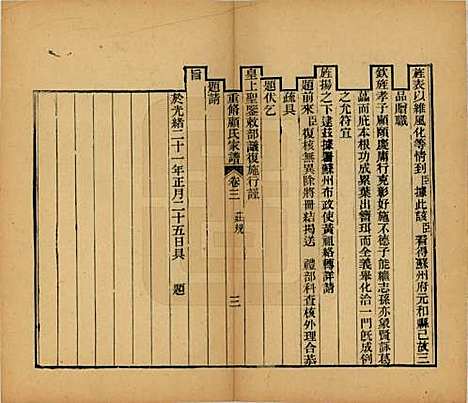 旌表以維風化等情到臣據此該臣看得蘇州府元和縣已故三
品贈職
欽旌孝子顧頤慶庸行克彰好施不德子能繼志孫亦象賢詠葛
藟而庇本根功成累葉出罍珥而全義舉化洽一門旣成例
之允符宜
旌揚之下逮兹據署蘇州布政使黃祖絡轉詳請
題前來臣復核無異除將冊結揭送 禮部科查核外理合恭
疏具
題伏乞
皇上聖鑒敕部議復施行謹
重脩顧氏家譜 卷三 莊規 三
題請
旨
於光緒二十一年正月二十五日具 題